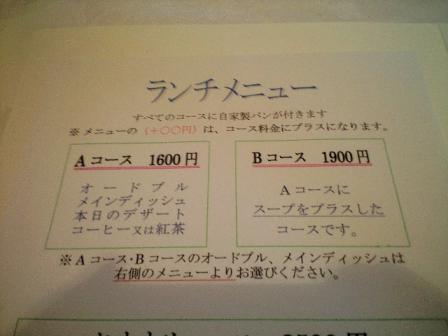 ランチメニュー
すべてのコースに自家製パンが付きます
※メニューの(+〇〇円)は、コース料金にプラスになります。
Aコース 1600円
オードブル
メインディッシュ
本日のデザート
コーヒー又は紅茶
Bコース 1900円
Aコースに
スープをプラスした
コースです。
※Aコース・Bコースのオードブル、メインディッシュは
右側のメニューよりお選びください。